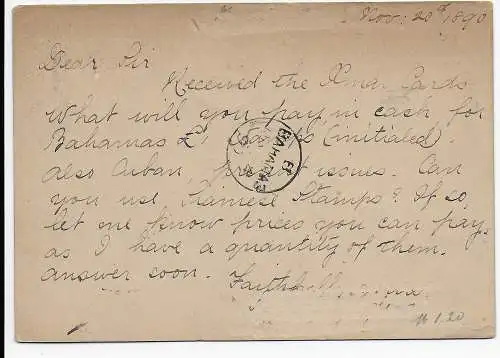 Nov: 20th 1890
Dear Sir
Received the Xmas Cards
What will you pay in cash for
Bahamas (initialed).
also Cuban present issues. Can
you use Siamese Stamps? If so,
let me know prices you can pay.
as I have a quantity of them.
answer soon.
BAHAMAS
1.20